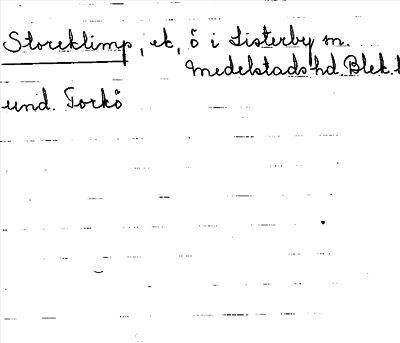 Storeklimp, ek, ö i Listerby sn.
Medelstads hd. Blek. l
und. Torkö